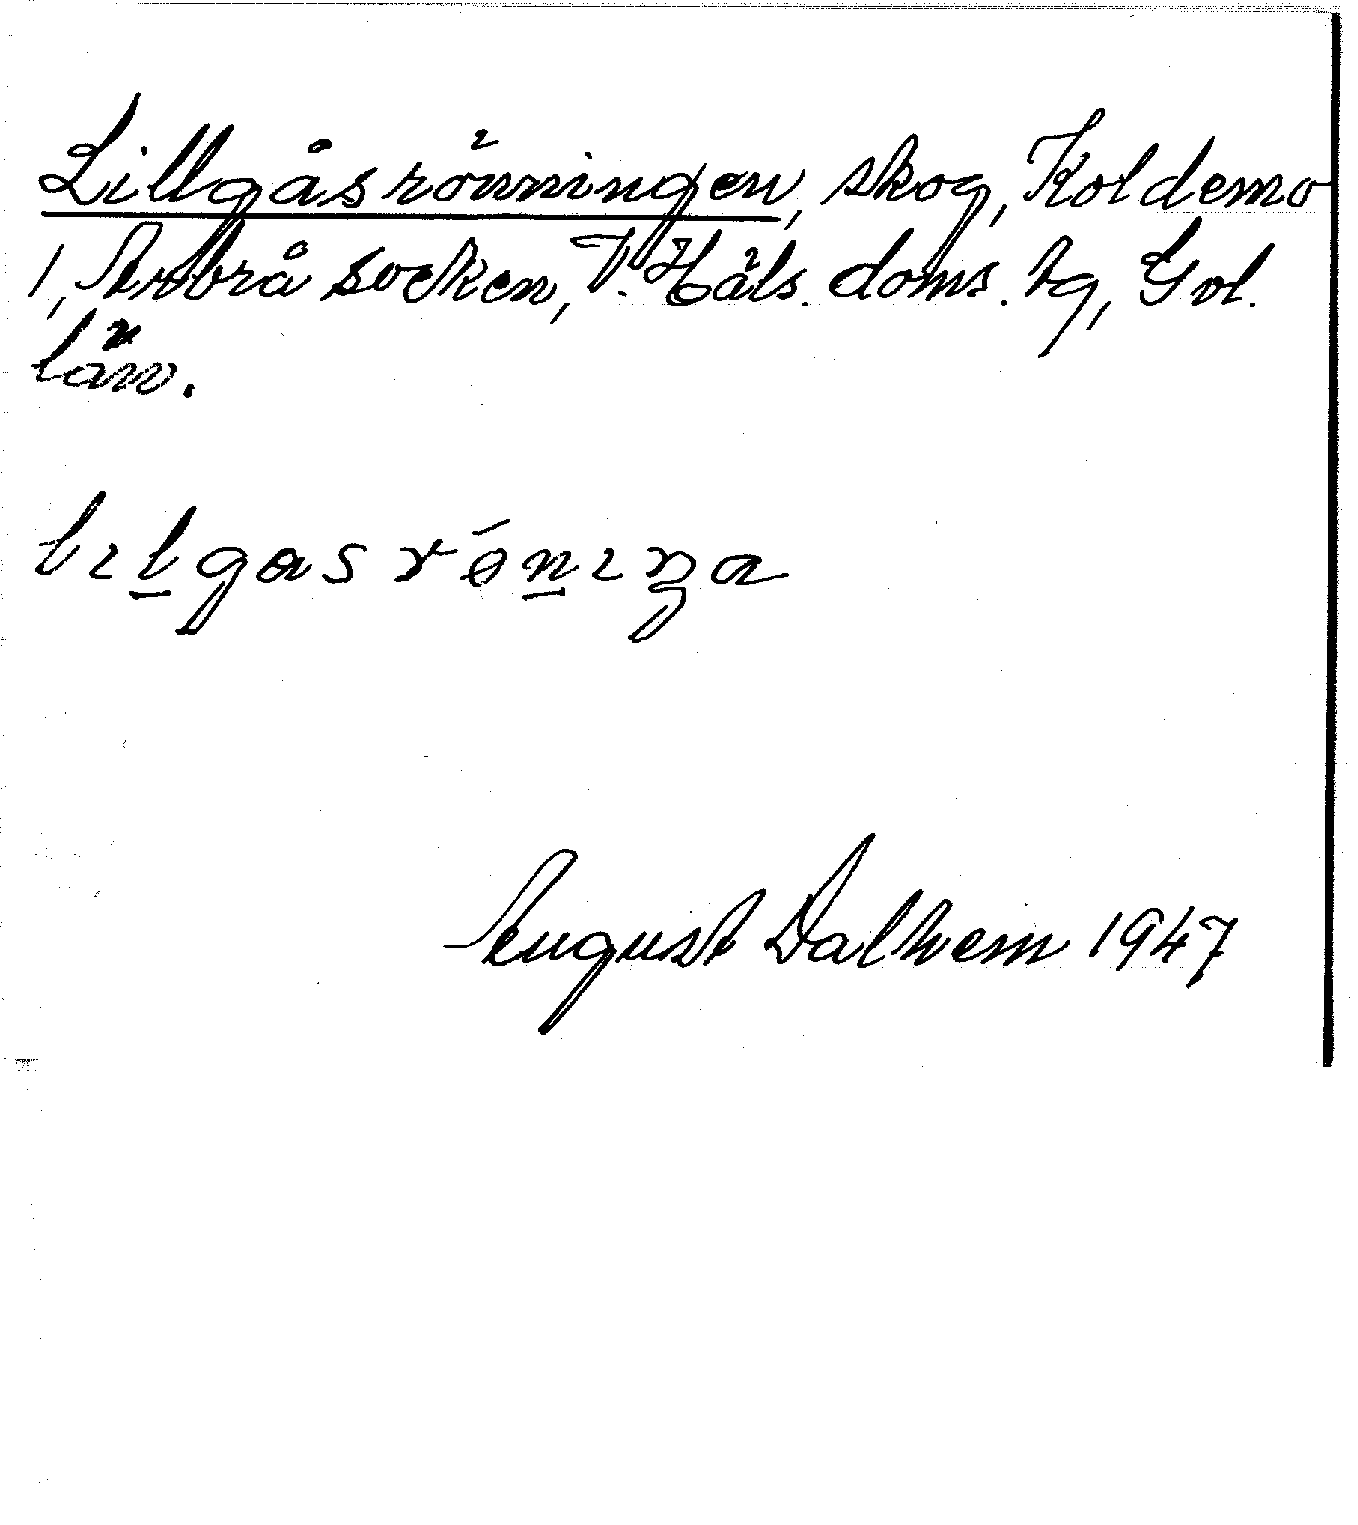 Lillgåsrönningen, skog, Koldemo
1, Arbrå socken, V. Häls. doms. hg, Gvl.
län.
lɩl̲gas rǿn̲ɩŋa
August Dalhem 1947